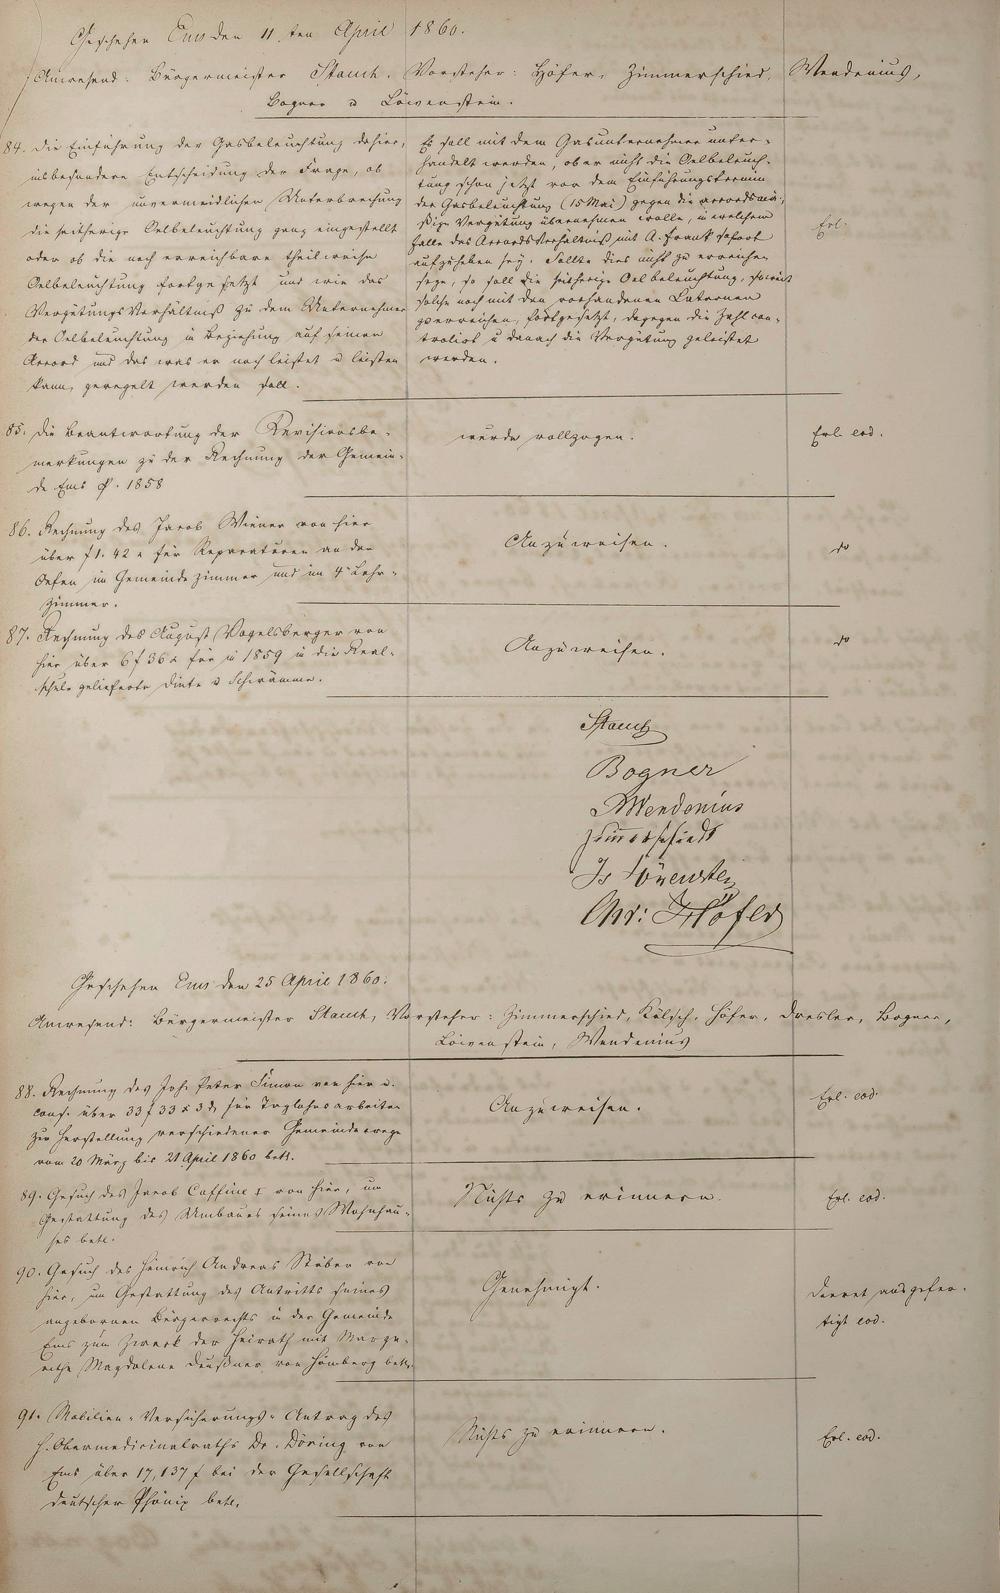 Geschehen Ems den 11ten April 1860.
Anwesend: Bürgermeister Stamm. Vorsteher: Höfer, Zimmerschied, Wendenius,
Bogner u Löwenstein.
84. Die Einführung der Gasbeleuchtung dahier,
insbesondere Entscheidung der Frage, ob
wegen der unvermeidlichen Unterbrechung
die seitherige Oelbeleuchtung ganz eingestellt
oder ob die noch erreichbare theilweise
Oelbeleuchtung fortgesetzt und wie das
Vergütungsverhältniß zu dem Unternehmer
der Oelbeleuchtung in Beziehung auf seinen
Accord und das was er noch leistet u leisten
kann, geregelt werden soll.
Es soll mit dem Gasunternehmer unter-
handelt werden, ob er nicht die Oelbeleuch-
tung schon jetzt vor dem Einführungstermin
der Gasbeleuchtung (15 Mai) gegen die accordmä-
ßige Vergütung übernehmen wolle, in welchem
Falle das Accordsverhältniß mit A. Frank sofort
aufzuheben sey. Sollte dies nicht zu erreichen
seyn, so soll die seitherige Oelbeleuchtung, soweit
solche noch mit den vorhandenen Laternen
zu erreichen, fortgesetzt, dagegen die Zahl con-
trolirt u danach die Vergütung geleistet
werden.
Erl.
85. Die Beantwortung der Revisionsbe-
merkungen zu der Rechnung der Gemein-
de Ems p. 1858
wurde vollzogen.
Erl. eod.
86. Rechnung des Jacob Wiener von hier
über f 1. 42 x für Reparaturen an den
Oefen im Gemeindezimmer und im 4n Lehr-
zimmer.
Anzuweisen.
do
87. Rechnung des August Vogelsberger von
hier über 6 f 36 x für in 1859 in die Real-
schule gelieferte Dinte u Schwämme.
Anzuweisen.
do
Stamm
Bogner
Wendenius
Zimmerschiedt
Is Löwenstein
Chr: Höfer
Geschehen Ems den 25 April 1860.
Anwesend: Bürgermeister Stamm, Vorsteher: Zimmerschied, Kölsch, Höfer, Dresler, Bogner,
Löwenstein, Wendenius
88. Rechnung des Joh. Peter Simon von hier u.
Cons. über 33 f 33 x 3 d für Taglohnsarbeiten
zur Herstellung verschiedener Gemeindewege
vom 20 März bis 21 April 1860 betr.
Anzuweisen.
Erl. eod.
89. Gesuch des Jacob Caffine I von hier, um
Gestattung des Umbaues seines Wohnhau-
ses betr.
Nichts zu erinnern.
Erl. eod.
90. Gesuch des Heinrich Andreas Stüber von
hier, um Gestattung des Antritts seines
angebornen Bürgerrechts in der Gemeinde
Ems zum Zweck der Heirath mit Marga-
rethe Magdalene Deußner von Hömberg betr.
Genehmigt.
Decret ausgefer-
tigt eod.
91. Mobilien-Versicherungs-Antrag des
H. Obermedicinalraths Dr. Döring von
Ems über 17,137 f bei der Gesellschaft
deutscher Phönix betr.
Nichts zu erinnern.
Erl. eod.